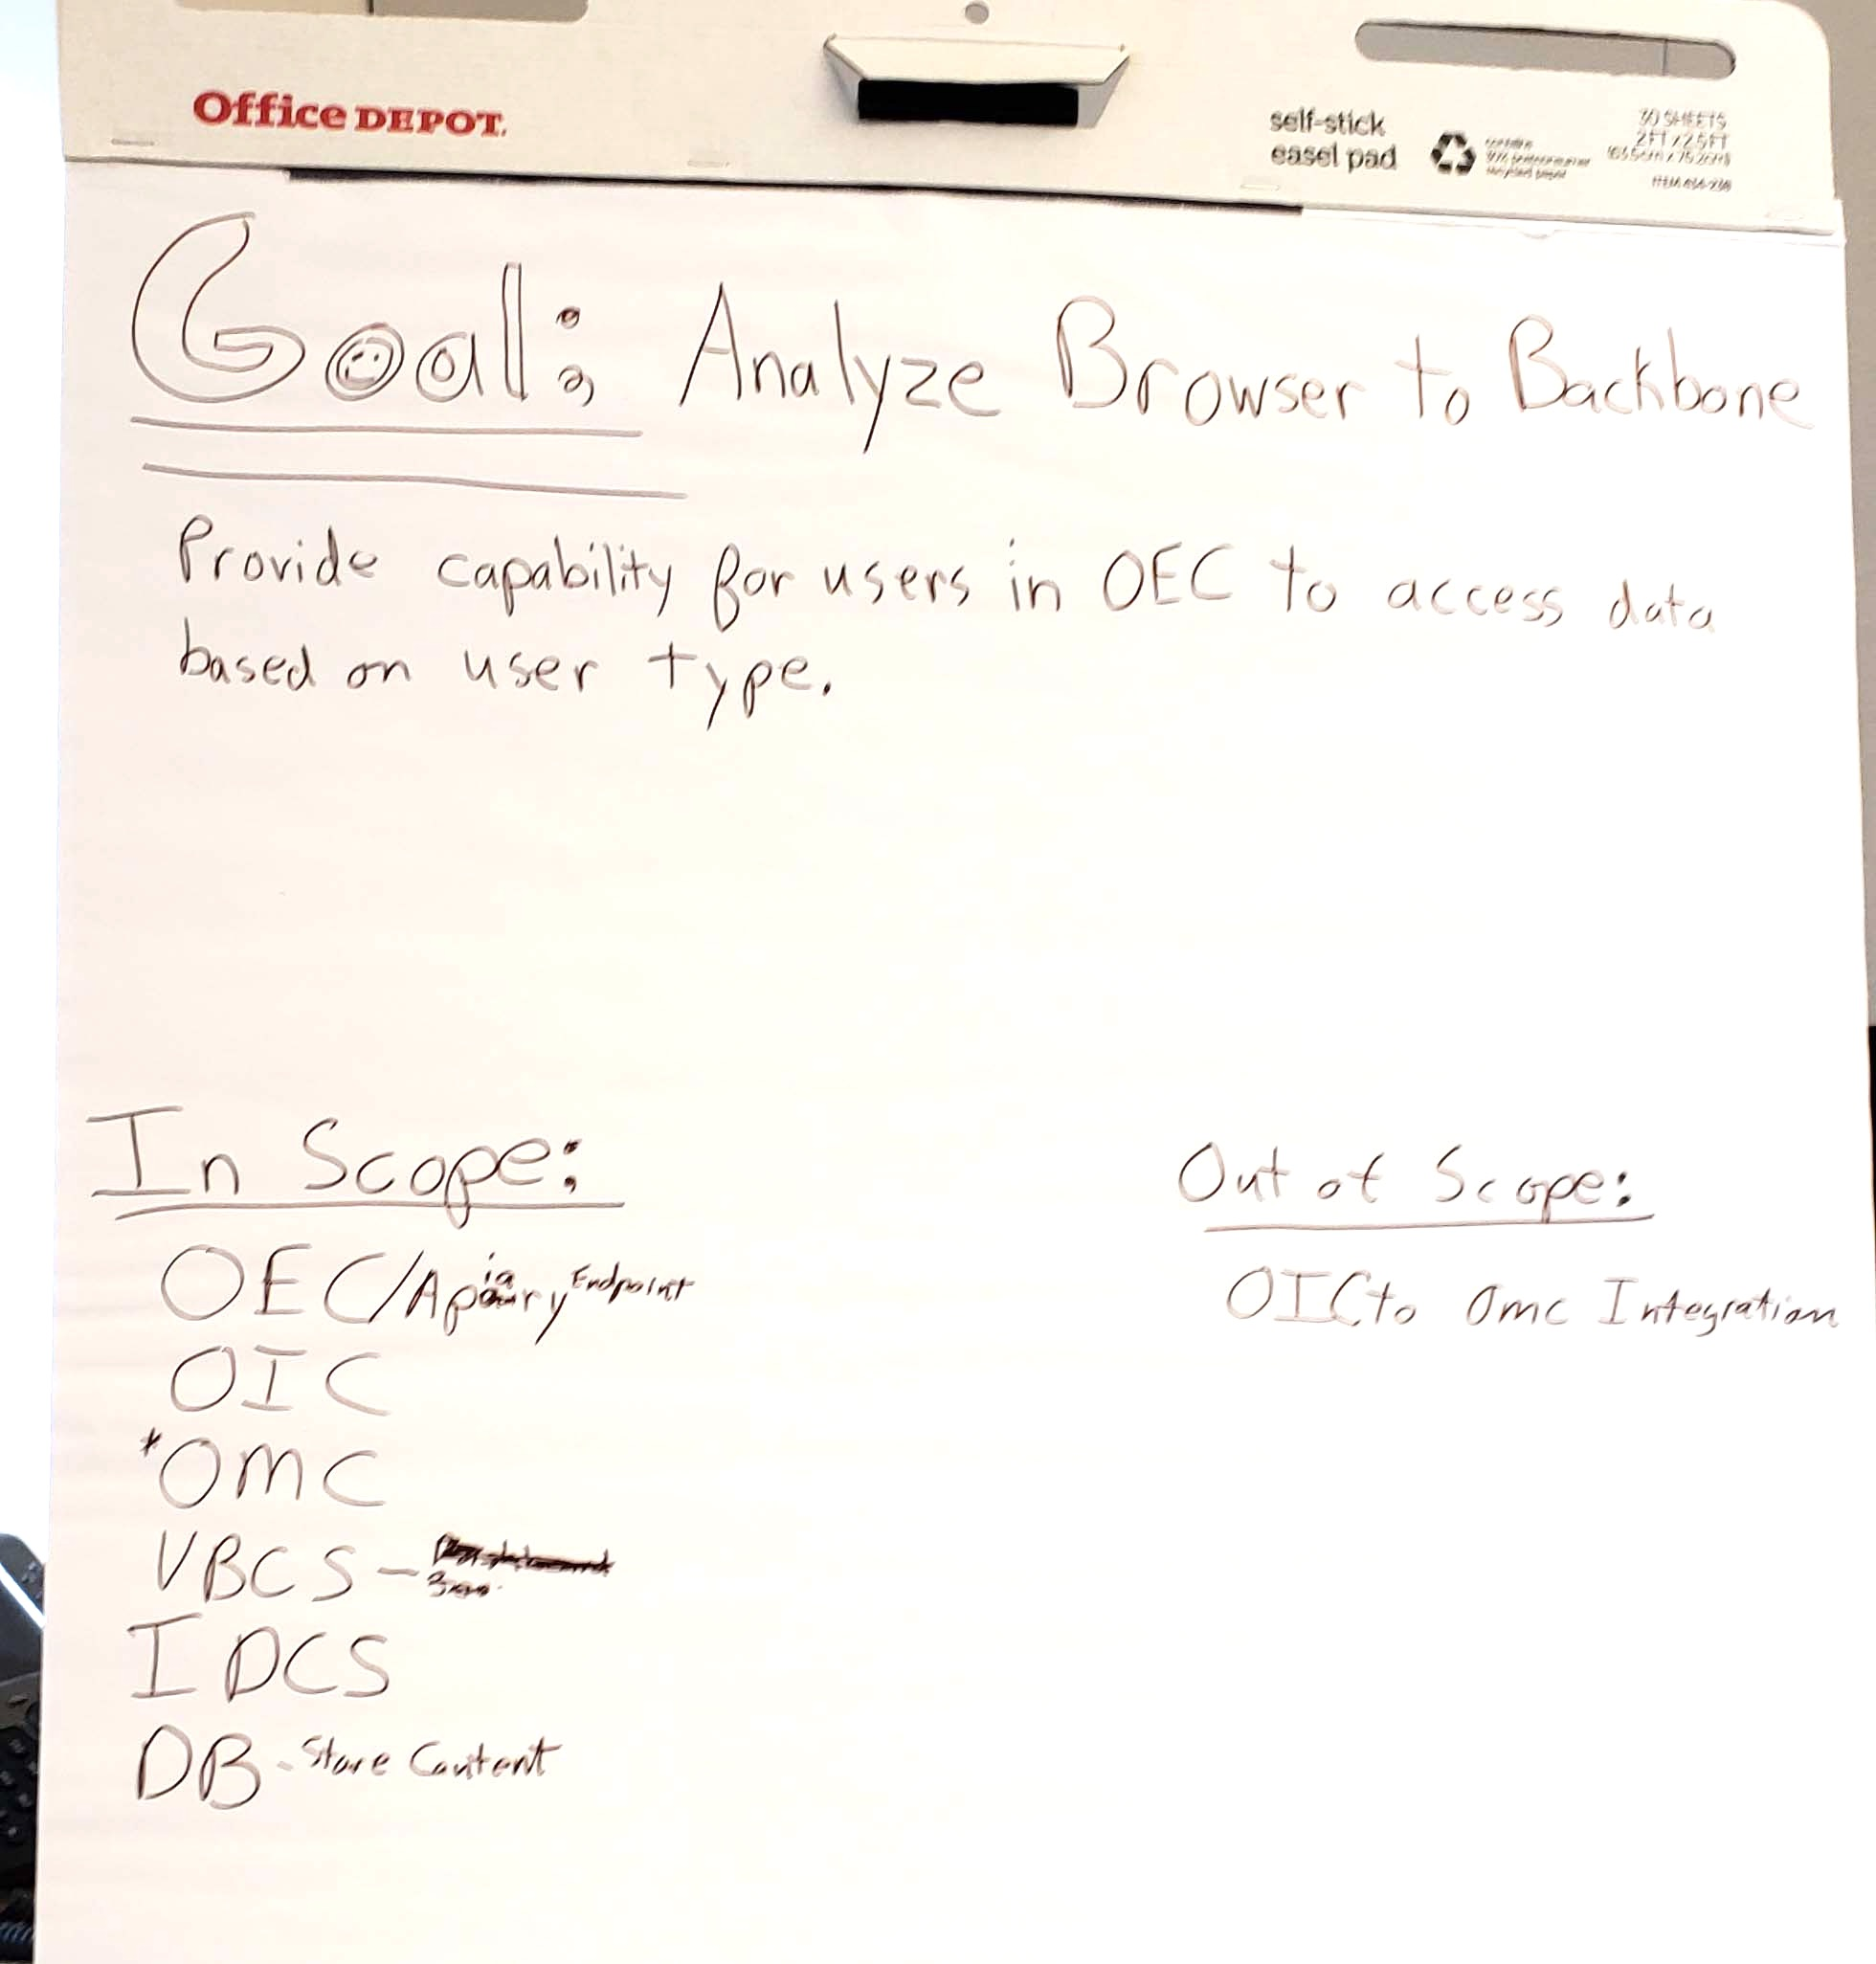 Office DEPOT.
self-stick
easel pad
30 SHEETS
2FT x 2.5FT
Goal: Analyze Browser to Backbone
Provide capability for users in OEC to access data
based on user type.
In Scope:
OEC/Apiary Endpoint
OIC
*OMC
VBCS -
IDCS
DB - Store Content
Out of Scope:
OIC to Omc Integration